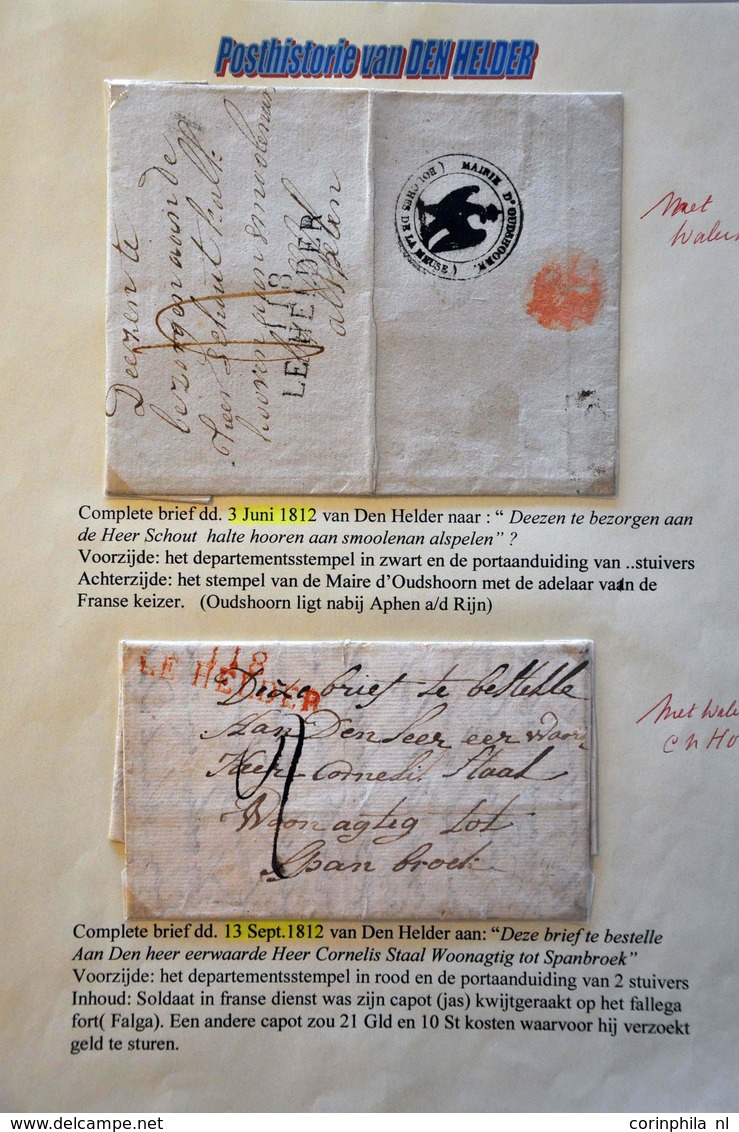 Posthistorie van DEN HELDER
Deezen te
bezorgen aan de
Heer Schout
hooren aan smoolenaar
alspelen
118
LE HELDER
MAIRIE D'OUDSHOORN.
(BOUCHES DE LA MEUSE)
Met
Complete brief dd. 3 Juni 1812 van Den Helder naar : “ Deezen te bezorgen aan
de Heer Schout halte hooren aan smoolenan alspelen” ?
Voorzijde: het departementsstempel in zwart en de portaanduiding van ..stuivers
Achterzijde: het stempel van de Maire d’Oudshoorn met de adelaar vaan de
Franse keizer. (Oudshoorn ligt nabij Aphen a/d Rijn)
118
LE HELDER
Deeze brief te bestelle
Aan Den heer eer waar
Heer Cornelis Staal
Woonagteg tot
Span broek
Met Wale
Complete brief dd. 13 Sept.1812 van Den Helder aan: “Deze brief te bestelle
Aan Den heer eerwaarde Heer Cornelis Staal Woonagtig tot Spanbroek”
Voorzijde: het departementsstempel in rood en de portaanduiding van 2 stuivers
Inhoud: Soldaat in franse dienst was zijn capot (jas) kwijtgeraakt op het fallega
fort( Falga). Een andere capot zou 21 Gld en 10 St kosten waarvoor hij verzoekt
geld te sturen.
corinphila nl